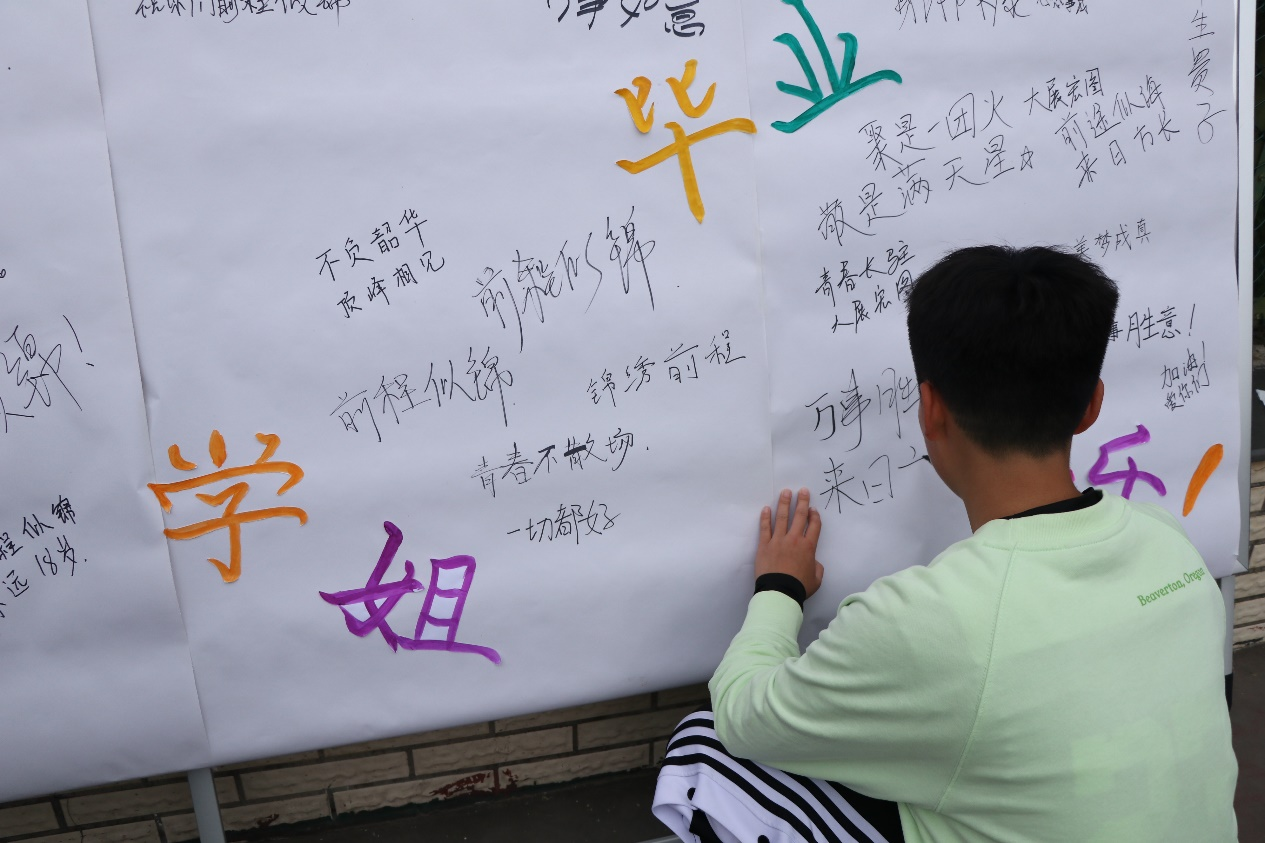 前程似锦
万事如意
毕业
生贵子
聚是一团火
散是满天星
大展宏图
前途似海
来日方长
不负韶华
顶峰相见
前程似锦.
青春长驻
大展宏图
美梦成真
事胜意!
加油!
爱你们
前程似锦.
锦绣前程
万事胜
来日
青春不散场.
一切都好
学姐
乐!
程似锦
永远18岁.
Beaverton, Oregon